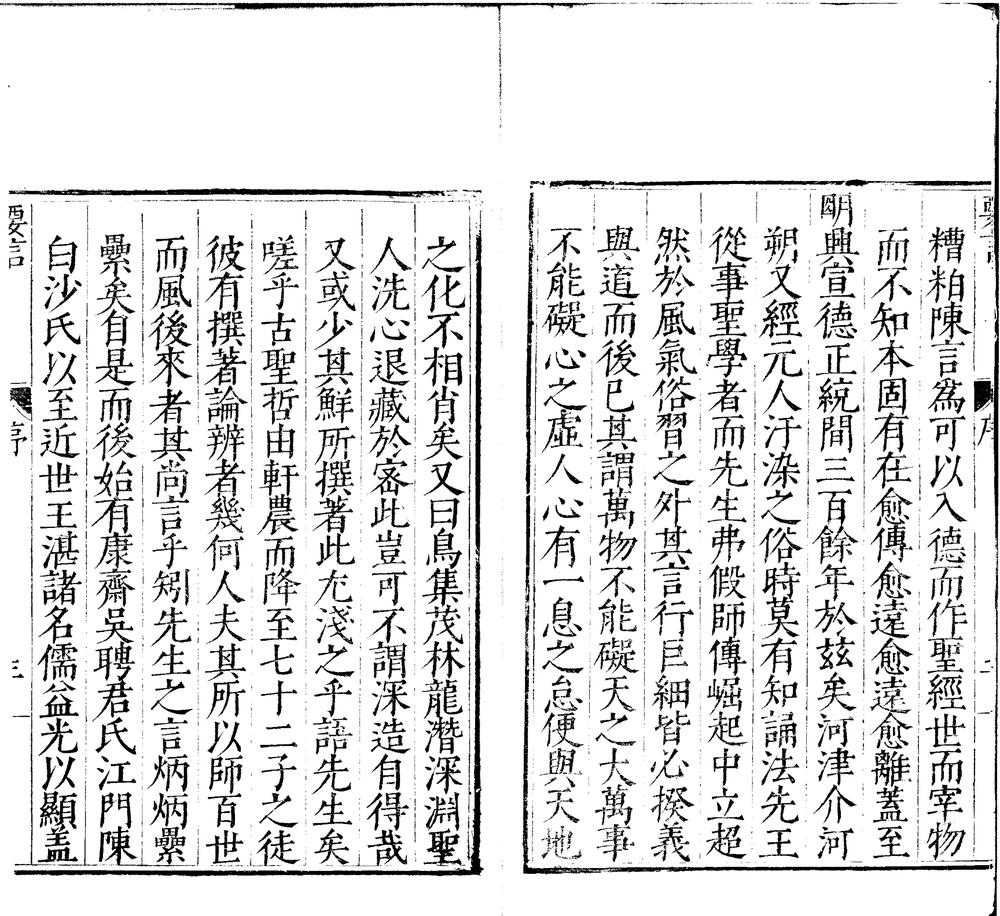 糟粕陳言爲可以入德而作聖經世而宰物
而不知本固有在愈傳愈遠愈遠愈離蓋至
明興宣德正統間三百餘年於玆矣河津介河
朔又經元人汙染之俗時莫有知誦法先王
從事聖學者而先生弗假師傳崛起中立超
然於風氣俗習之外其言行巨細皆必揆義
與道而後已其謂萬物不能礙天之大萬事
不能礙心之虛人心有一息之怠便與天地
之化不相肖矣又曰鳥集茂林龍潛深淵聖
人洗心退藏於密此豈可不謂深造自得哉
又或少其鮮所撰著此尤淺之乎語先生矣
嗟乎古聖哲由軒農而降至七十二子之徒
彼有撰著論辨者幾何人夫其所以師百世
而風後來者其尚言乎矧先生之言炳炳纍
纍矣自是而後始有康齋吳聘君氏江門陳
白沙氏以至近世王湛諸名儒益光以顯蓋
要言
序
三